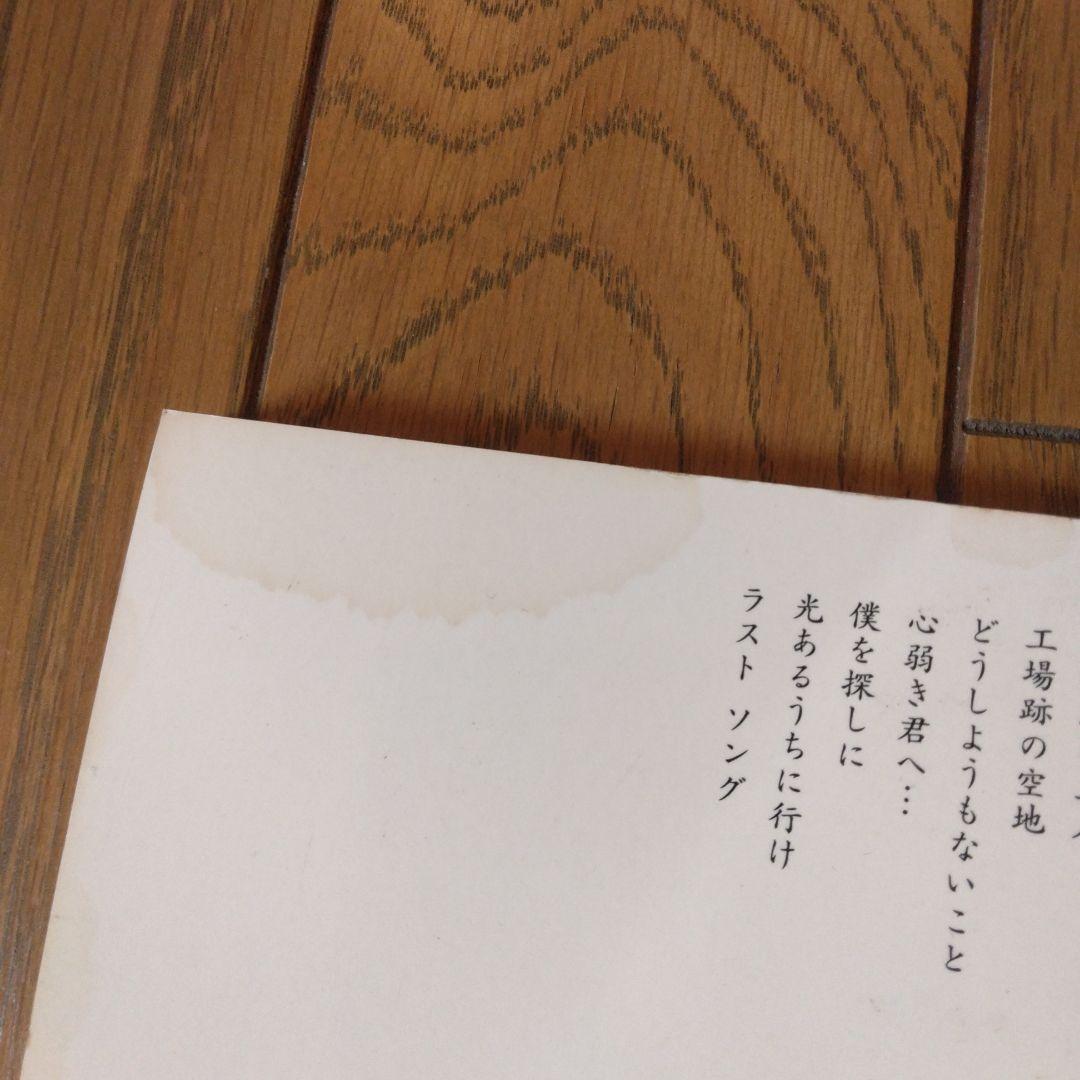 工場跡の空地
どうしようもないこと
心弱き君へ…
僕を探しに
光あるうちに行け
ラスト ソング